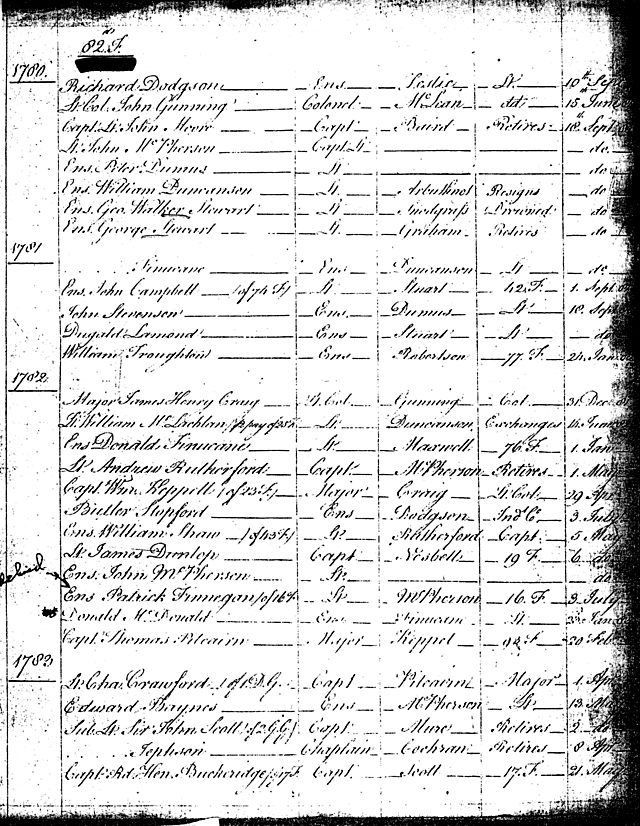 82 F.
1780.
Richard Dodgson Ens Leslie Lt. 10th Sept
Lt. Col. John Gunning Colonel McLean dd. 15 June
Capt. Lt. John Moore Capt Baird Retires 18th Sept
Lt. John McPherson Capt. Lt do
Ens. Peter Dumus Lt do
Ens. William Duncanson Lt Arbuthnot Resigns do
Ens. Geo. Walker Stewart Lt Snodgrass Drowned do
Ens. George Stewart Lt Graham Retires do
1781
Finucane Ens Duncanson Lt do
Ens. John Campbell of 74 F. Lt Stuart 42 F. 1. Sept
John Stevenson Ens Dumus Lt 18. Sept
Dugald Lamond Ens Stuart Lt do
William Troughton Ens Robertson 77. F. 24 Jan
1782
Major James Henry Craig Lt. Col. Gunning Col. 31 Dec
Lt. William McLachlan Lt. Duncanson Exchanges 14 June
Ens Donald Finucane Lt. Maxwell 76. F. 1. Jan
Lt. Andrew Rutherford Capt McPherson Retires 1. May
Capt. Wm. Keppell of 23 F. Major Craig Lt. Col. 29 Apr
Butler Stopford Ens Dodgson Ind. C. 3. July
Ens. William Shaw of 43 F. Lt. Rutherford Capt. 5 May
Lt. James Dunlop Capt Nesbett 19 F. 6
Ens. John McPherson Lt. do
Ens Patrick Finnegan of 16 F. Lt McPherson 16. F. 3 July
Donald McDonald Ens Finucane Lt.
Capt. Thomas Pitcairn Major Keppel F 20 Feb
1783
Lt. Cha. Crawford of 1 D.G. Capt Pitcairn Major 1. Apr
Edward Baynes Ens McPherson Lt. 13
Sub. Lt. Sir John Scott of 2 G.G. Capt. Mure Retires 2. do
Jephson Chaplain Cochran Retires 8 Apr
Capt. Rd. Hon. Buckeridge Capt. Scott 17. F. 21. May